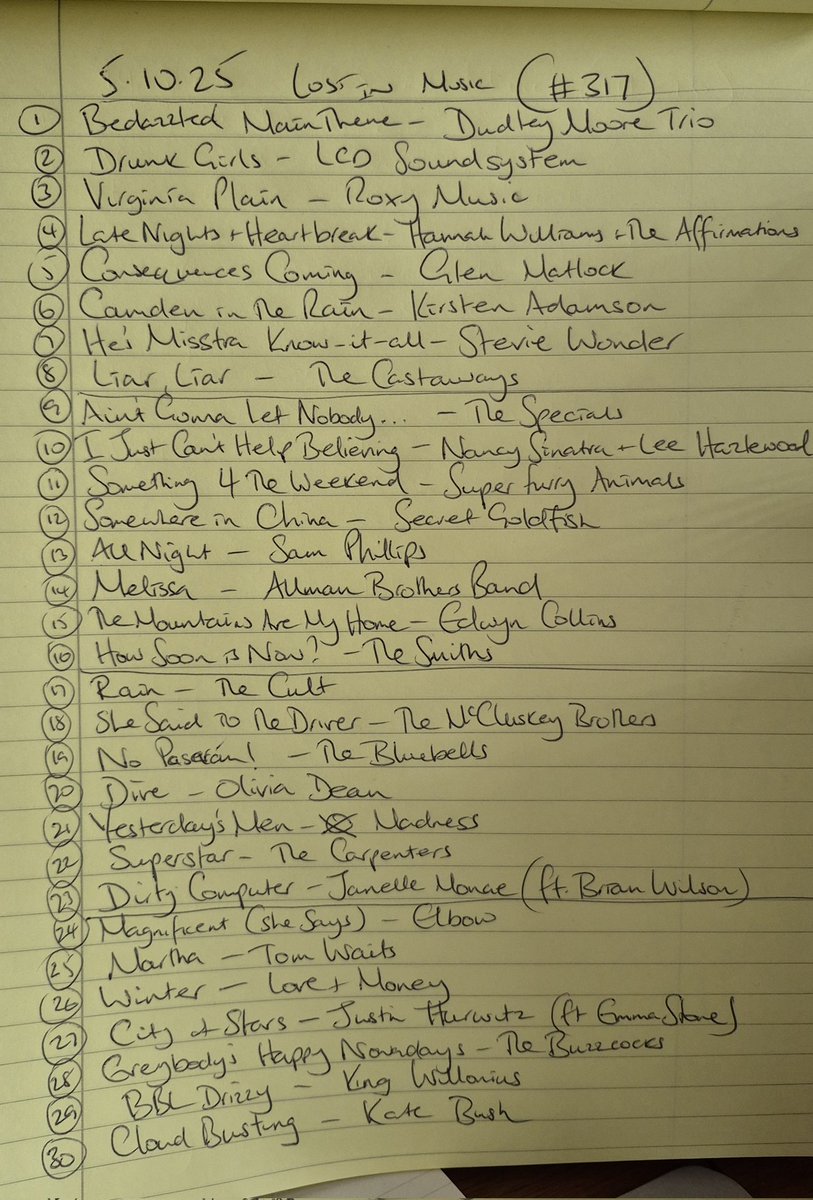 5.10.25 Lost in Music (#317)
1 Bedazzled Main Theme - Dudley Moore Trio
2 Drunk Girls - LCD Soundsystem
3 Virginia Plain - Roxy Music
4 Late Nights + Heartbreak - Hannah Williams + The Affirmations
5 Consequences Coming - Glen Matlock
6 Camden in The Rain - Kirsten Adamson
7 He's Misstra Know-it-all - Stevie Wonder
8 Liar, Liar - The Castaways
9 Ain't Gonna Let Nobody... - The Specials
10 I Just Can't Help Believing - Nancy Sinatra + Lee Hazlewood
11 Something 4 The Weekend - Super Furry Animals
12 Somewhere in China - Secret Goldfish
13 All Night - Sam Phillips
14 Melissa - Allman Brothers Band
15 The Mountains Are My Home - Edwyn Collins
16 How Soon is Now? - The Smiths
17 Rain - The Cult
18 She Said To The Driver - The McCluskey Brothers
19 No Pasarán! - The Bluebells
20 Dive - Olivia Dean
21 Yesterday's Men - Madness
22 Superstar - The Carpenters
23 Dirty Computer - Janelle Monae (ft. Brian Wilson)
24 Magnificent (She Says) - Elbow
25 Martha - Tom Waits
26 Winter - Love + Money
27 City of Stars - Justin Hurwitz (ft Emma Stone)
28 Everybody's Happy Nowadays - The Buzzcocks
29 BBL Drizzy - King Willonius
30 Cloud Busting - Kate Bush